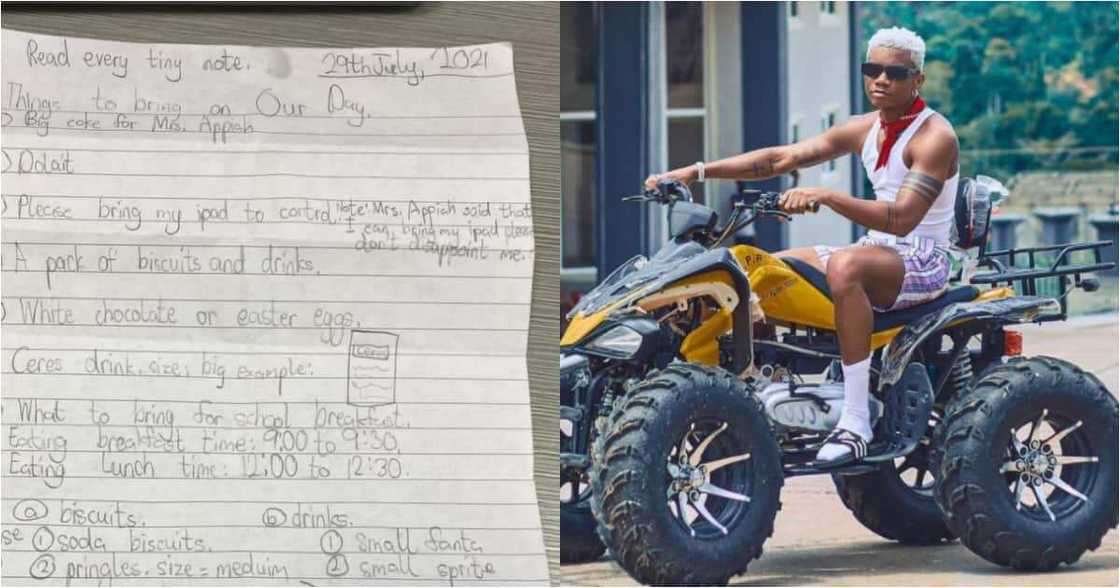 Read every tiny note. 29th July, 2021
Things to bring on Our Day.
Big cake for Mrs. Appiah
Dolait
Please bring my ipad to control. Note: Mrs. Appiah said that
I can bring my ipad please
don't disappoint me.
A pack of biscuits and drinks.
White chocolate or easter eggs.
Ceres drink. size: big example:
Ceres
What to bring for school breakfast.
Eating breakfast time: 9:00 to 9:30.
Eating Lunch time: 12:00 to 12:30.
ⓐ biscuits. ⓑ drinks.
① soda biscuits. ① small fanta
② pringles. size = meduim ② small sprite